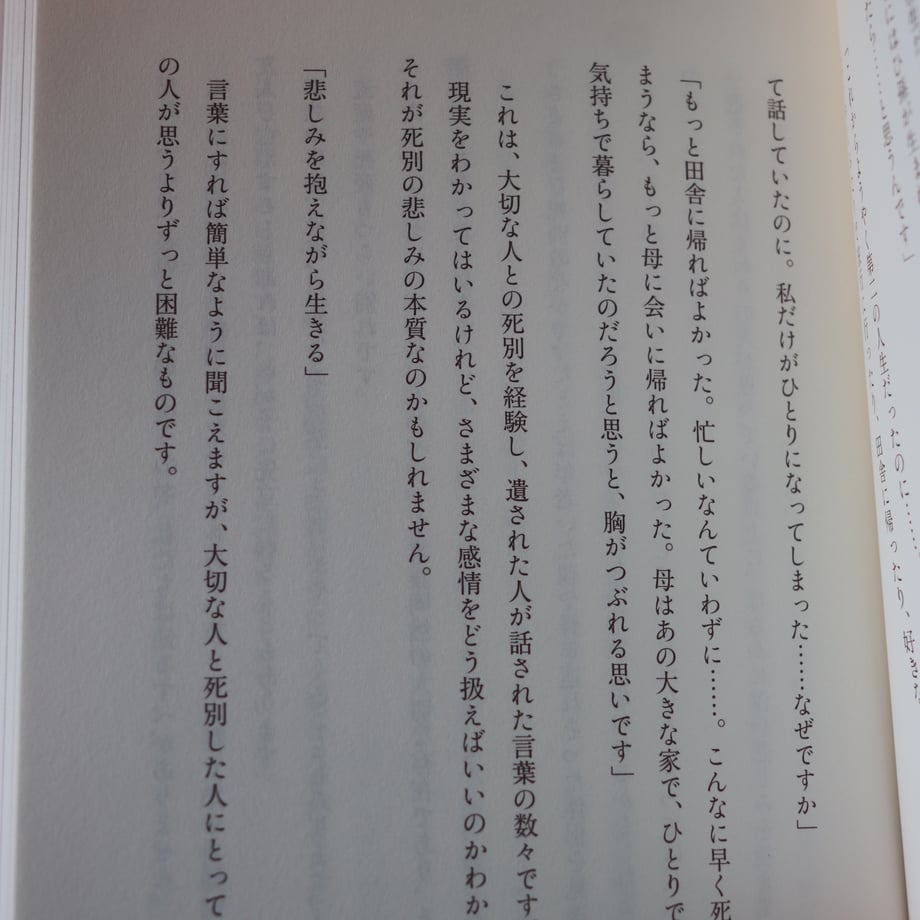 には
す」
たら……と思うんです」
第二の人生だったのに……
たり、田舎に帰ったり、好きな
て話していたのに。私だけがひとりになってしまった……なぜですか」
「もっと田舎に帰ればよかった。忙しいなんていわずに……。こんなに早く死
まうなら、もっと母に会いに帰ればよかった。母はあの大きな家で、ひとりで
気持ちで暮らしていたのだろうと思うと、胸がつぶれる思いです」
これは、大切な人との死別を経験し、遺された人が話された言葉の数々です
現実をわかってはいるけれど、さまざまな感情をどう扱えばいいのかわか
それが死別の悲しみの本質なのかもしれません。
「悲しみを抱えながら生きる」
言葉にすれば簡単なように聞こえますが、大切な人と死別した人にとって
の人が思うよりずっと困難なものです。